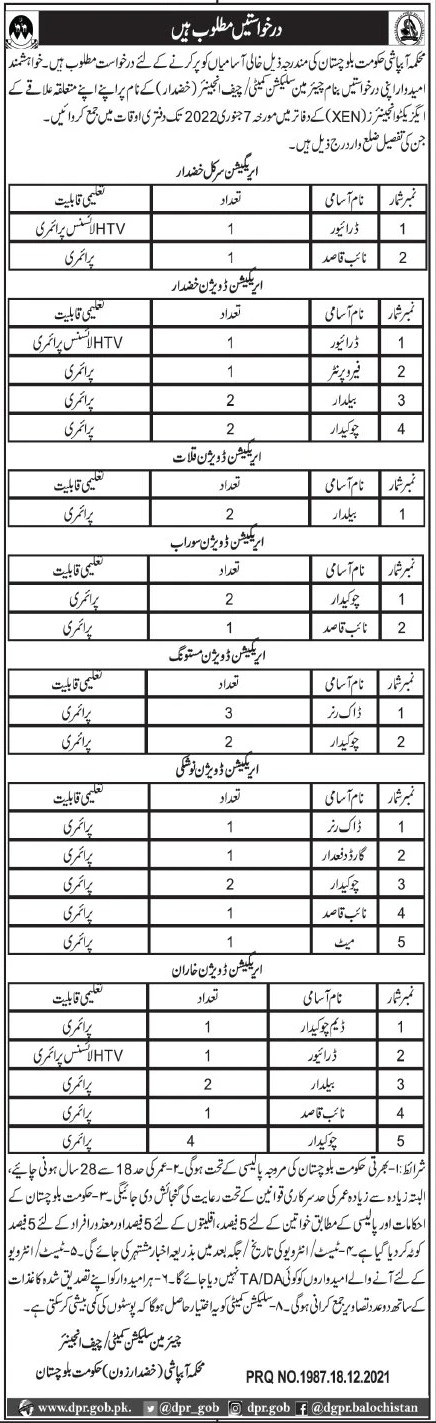 درخواستیں مطلوب ہیں
محکمہ آبپاشی حکومت بلوچستان کی مندرجہ ذیل خالی آسامیاں کو پر کرنے کے لئے درخواست مطلوب ہیں۔ خواہشمند
امیدوار اپنی درخواستیں بنام چیئرمین سلیکشن کمیٹی/ چیف انجینئر (خضدار) کے نام پر اپنے اپنے متعلقہ علاقے کے
ایگزیکٹو انجینئرز (XEN) کے دفاتر میں مورخہ 7 جنوری 2022 تک دفتری اوقات میں جمع کروائیں۔
جن کی تفصیل ضلع وار درج ذیل ہیں۔
ایریگیشن سرکل خضدار
نمبر شمار نام آسامی تعداد تعلیمی قابلیت
1 ڈرائیور 1 HTV لائسنس پرائمری
2 نائب قاصد 1 پرائمری
ایریگیشن ڈویژن خضدار
نمبر شمار نام آسامی تعداد تعلیمی قابلیت
1 ڈرائیور 1 HTV لائسنس پرائمری
2 فیرو پرنٹر 1 پرائمری
3 بیلدار 2 پرائمری
4 چوکیدار 2 پرائمری
ایریگیشن ڈویژن قلات
نمبر شمار نام آسامی تعداد تعلیمی قابلیت
1 بیلدار 2 پرائمری
ایریگیشن ڈویژن سوراب
نمبر شمار نام آسامی تعداد تعلیمی قابلیت
1 چوکیدار 2 پرائمری
2 نائب قاصد 1 پرائمری
ایریگیشن ڈویژن مستونگ
نمبر شمار نام آسامی تعداد تعلیمی قابلیت
1 ڈاک رنر 3 پرائمری
2 چوکیدار 2 پرائمری
ایریگیشن ڈویژن نوشکی
نمبر شمار نام آسامی تعداد تعلیمی قابلیت
1 ڈاک رنر 1 پرائمری
2 گارڈ دفعدار 1 پرائمری
3 چوکیدار 2 پرائمری
4 نائب قاصد 1 پرائمری
5 میٹ 1 پرائمری
ایریگیشن ڈویژن خاران
نمبر شمار نام آسامی تعداد تعلیمی قابلیت
1 ڈیم چوکیدار 1 پرائمری
2 ڈرائیور 1 HTV لائسنس پرائمری
3 بیلدار 2 پرائمری
4 نائب قاصد 1 پرائمری
5 چوکیدار 4 پرائمری
شرائط: ۱- بھرتی حکومت بلوچستان کی مروجہ پالیسی کے تحت ہوگی۔ ۲- عمر کی حد 18 سے 28 سال ہونی چاہیے،
البتہ زیادہ سے زیادہ عمر کی حد سرکاری قوانین کے تحت رعایت کی گنجائش دی جائیگی۔ ۳- حکومت بلوچستان کے
احکامات اور پالیسی کے مطابق خواتین کے لئے 5 فیصد، اقلیتوں کے لئے 5 فیصد اور معذور افراد کے لئے 5 فیصد
کوٹہ کر دیا گیا ہے۔ ۴- ٹیسٹ/ انٹرویو کی تاریخ/ جگہ بعد میں بذریعہ اخبار مشتہر کی جائے گی۔ ۵- ٹیسٹ/ انٹرویو
کے لئے آنے والے امیدواروں کو کوئی TA/DA نہیں دیا جائے گا۔ ۶- ہر امیدوار کو اپنے تصدیق شدہ کاغذات
کے ساتھ دو عدد تصاویر جمع کرانی ہوگی۔ ۸- سلیکشن کمیٹی کو یہ اختیار حاصل ہوگا کہ پوسٹوں کی کمی بیشی کر سکتی ہے۔
چیئرمین سلیکشن کمیٹی/ چیف انجینئر
محکمہ آبپاشی (خضدار زون) حکومت بلوچستان
PRQ NO.1987.18.12.2021
www.dpr.gob.pk. @dpr_gob dpr.gob @dgpr.balochistan